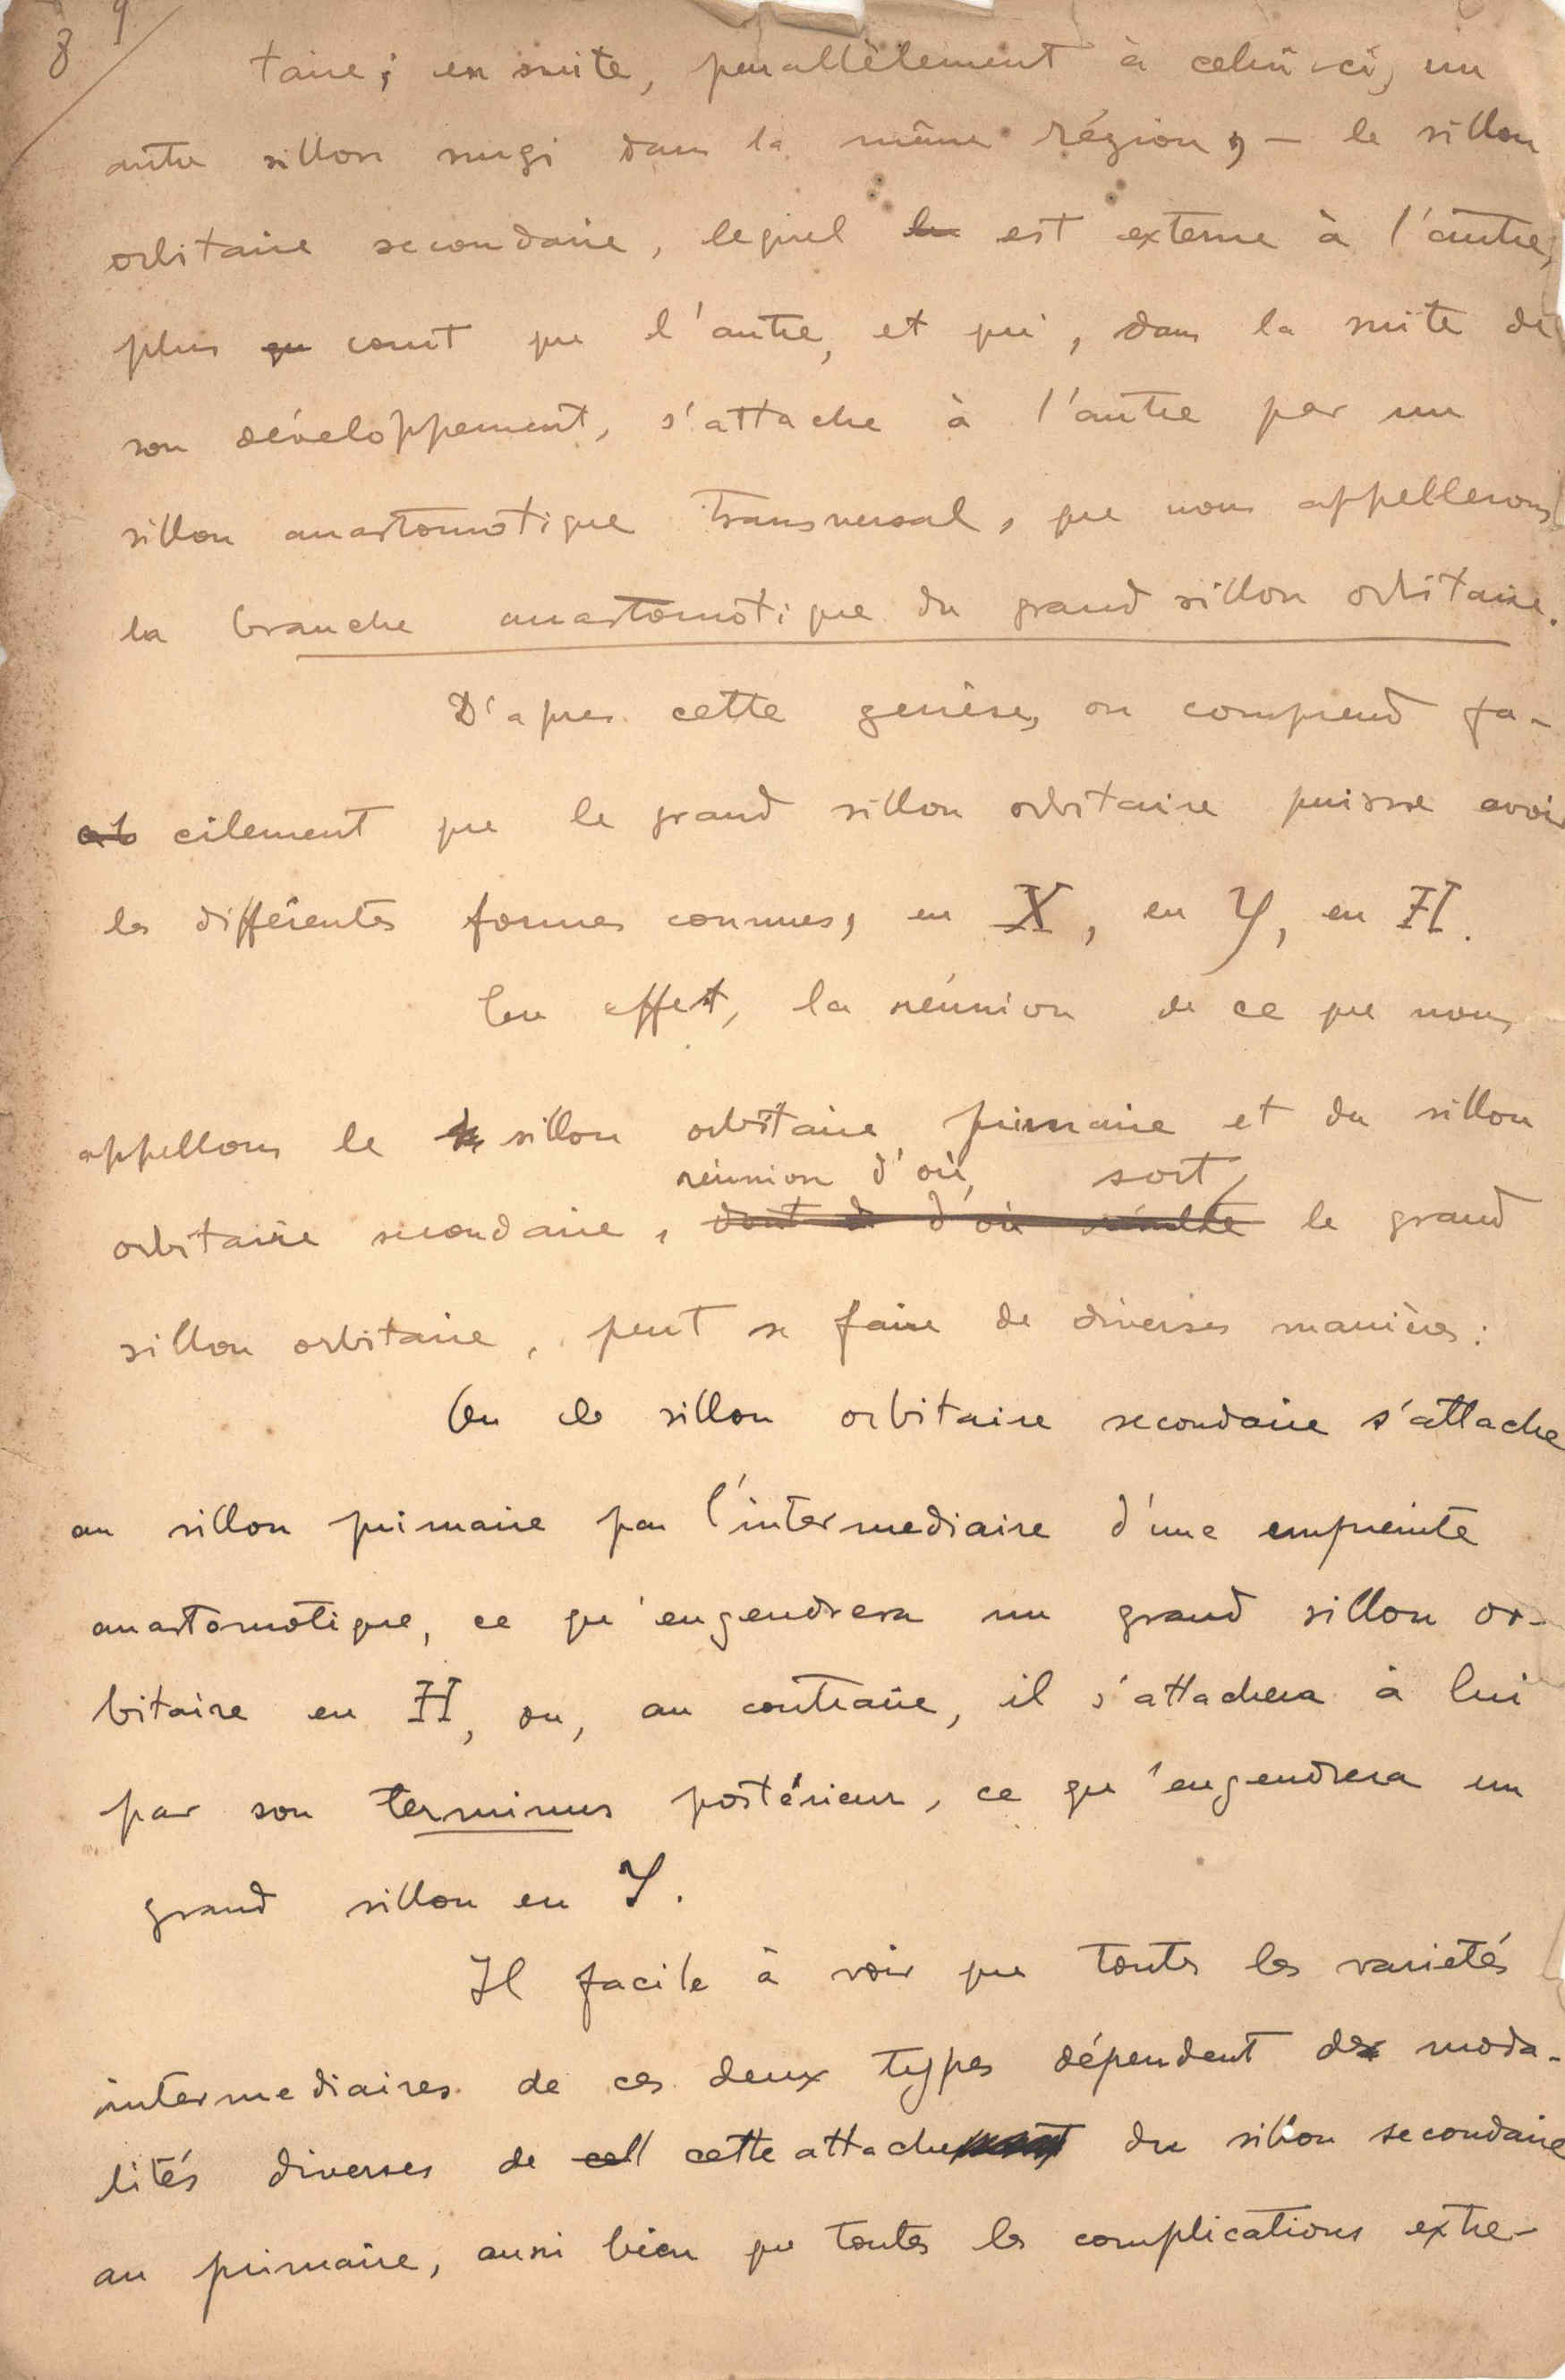 8 9
taire; ensuite, parallèlement à celui-ci, un
autre sillon surgi dans la même région, — le sillon
orbitaire secondaire, lequel est externe à l'autre,
plus court que l'autre, et qui, dans la suite de
son développement, s'attache à l'autre par un
sillon anastomotique transversal, que nous appellerons
la branche anastomotique du grand sillon orbitaire.
D'apres cette genèse, on comprend fa-
cilement que le grand sillon orbitaire puisse avoir
les différentes formes connues, en X, en Y, en H.
En effet, la réunion de ce que nous
appellons le sillon orbitaire primaire et du sillon
réunion d'où, sort,
orbitaire secondaire, dont d'où résulte le grand
sillon orbitaire, peut se faire de diverses manières:
Ou le sillon orbitaire secondaire s'attache
au sillon primaire par l'intermediaire d'une empreinte
anastomotique, ce qu'engendrera un grand sillon or-
bitaire en H, ou, au contraire, il s'attachera à lui
par son terminus postérieur, ce qu'engendrera un
grand sillon en Y.
Il facile à voir que toutes les varietés
intermediaires de ces deux types dépendent des moda-
lités diverses de cell cette attache du sillon secondaire
au primaire, aussi bien que toutes les complications extre-